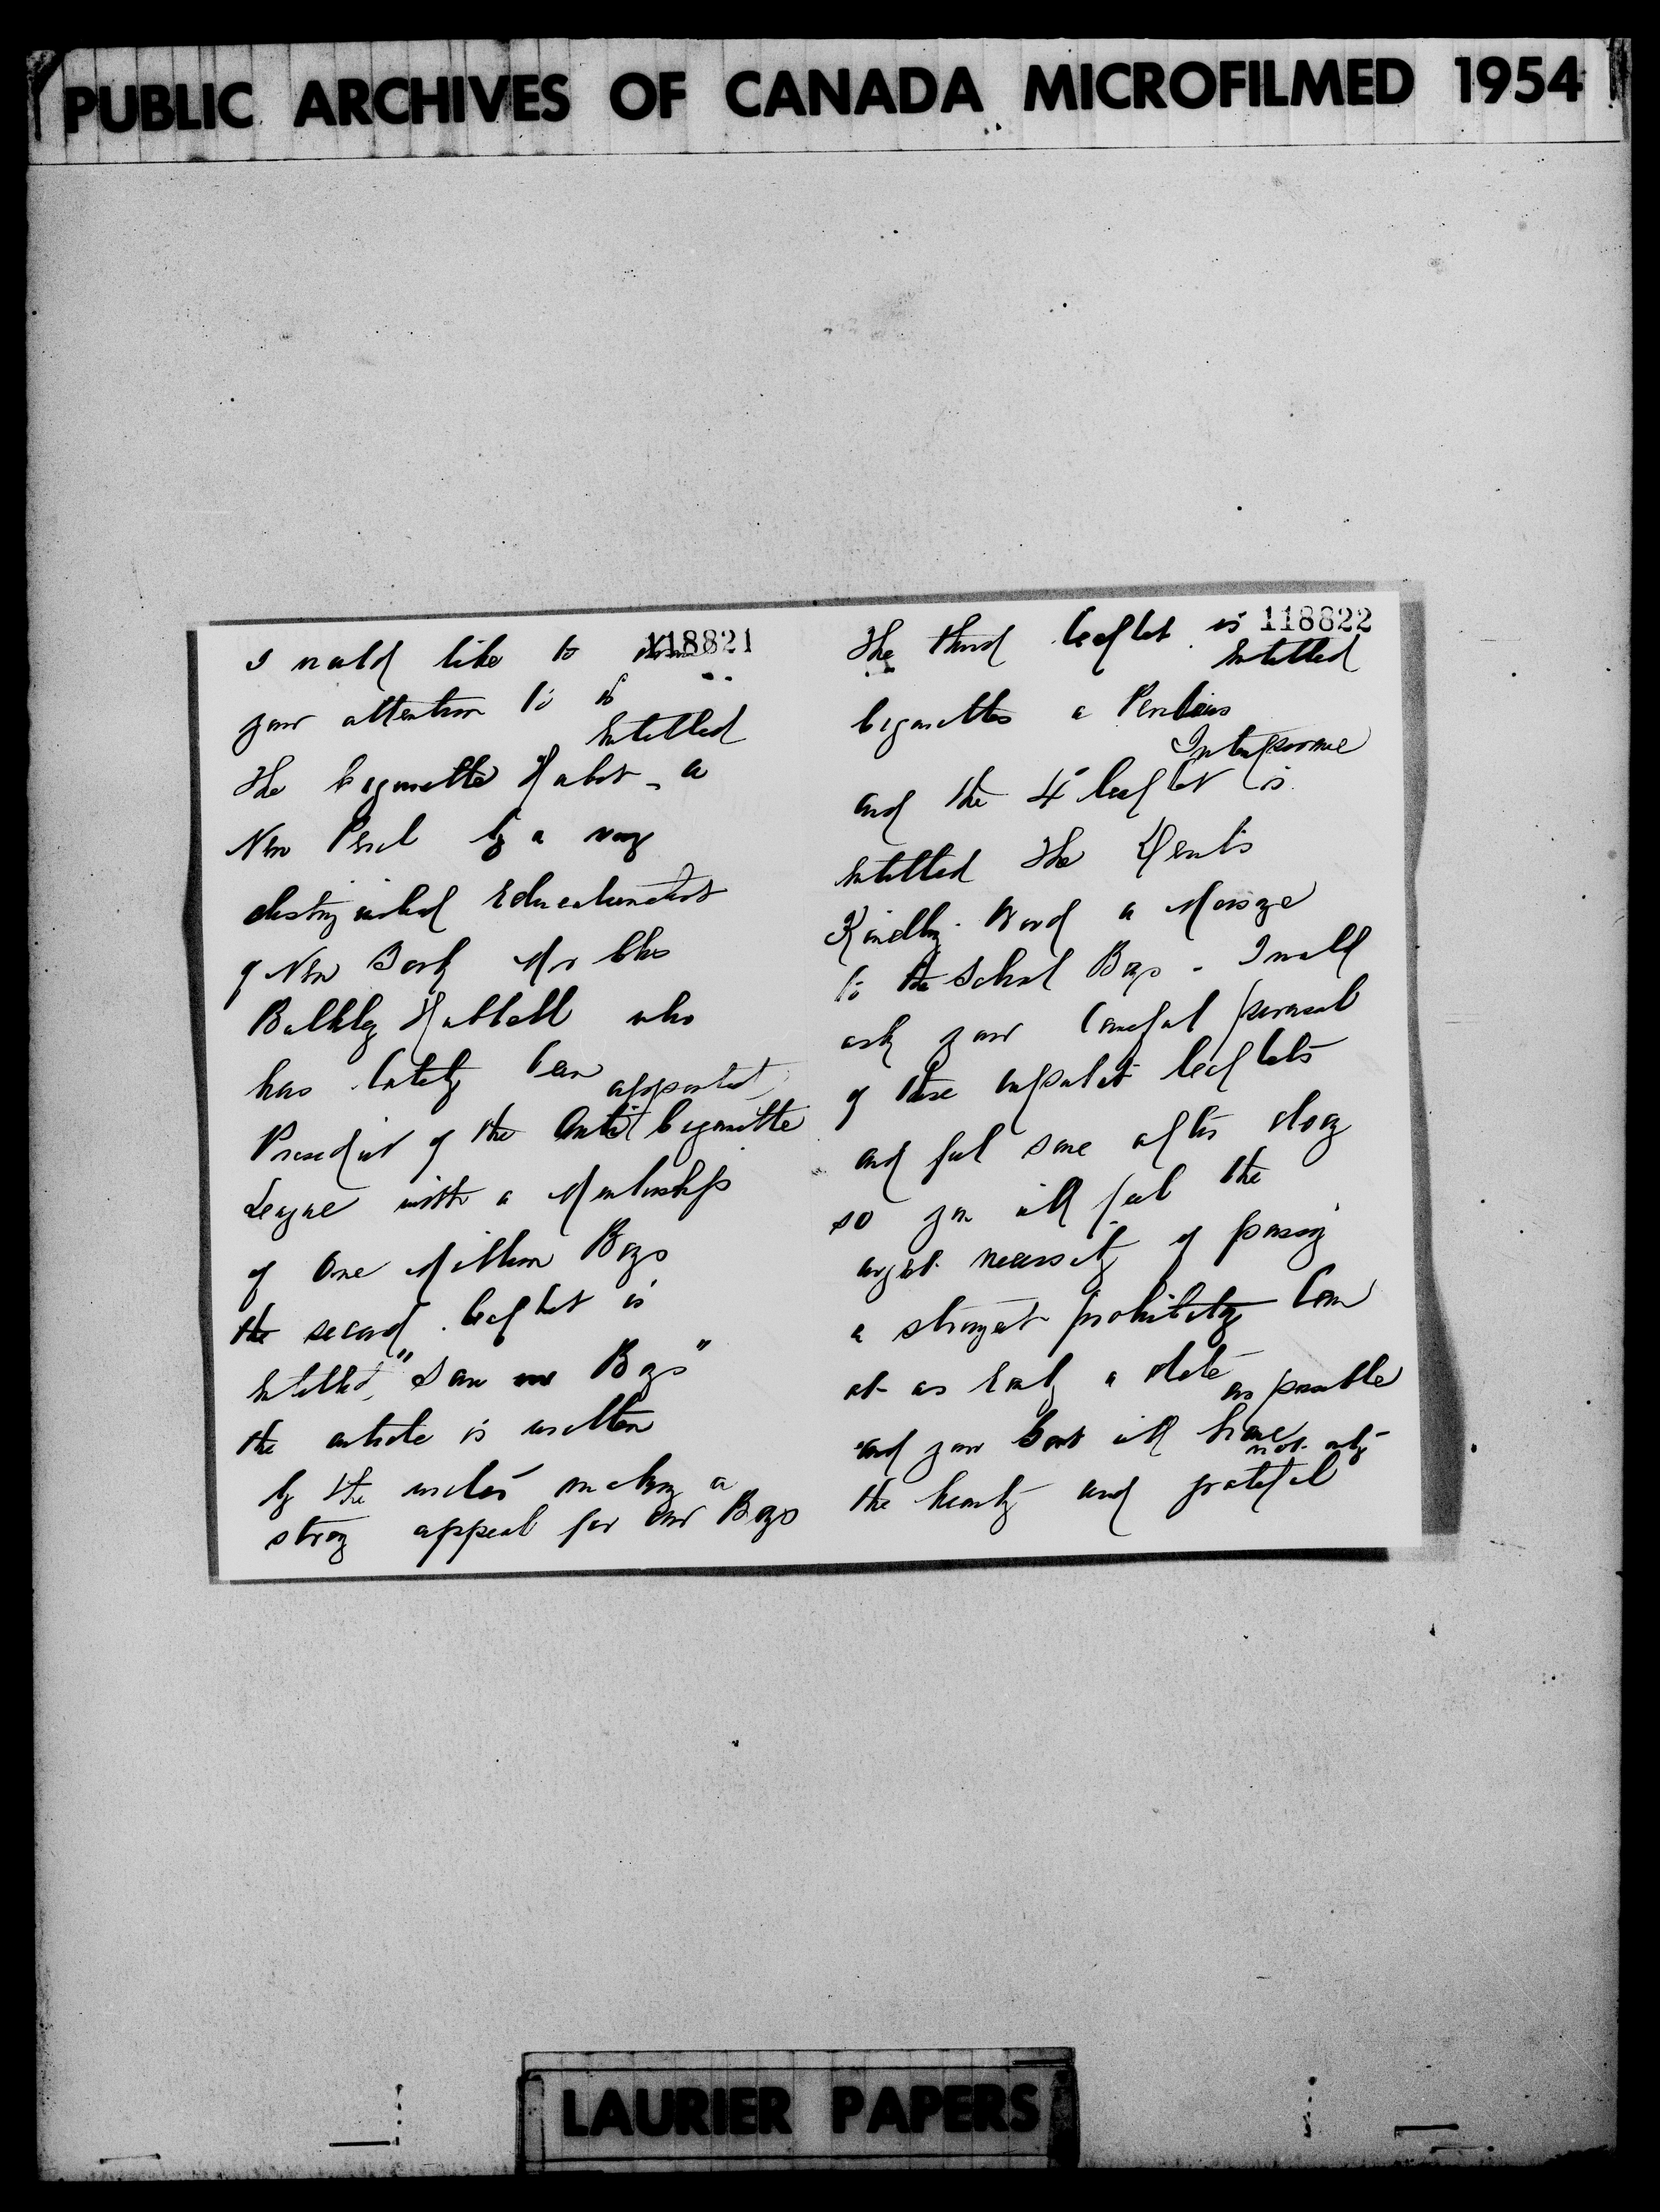 PUBLIC ARCHIVES OF CANADA MICROFILMED 1954
118821
I would like to draw
your attention to is
Entitled
The Cigarette Habit - a
New Peril by a very
distinguished Educationalist
of New York Mr Chs
Bulkley Hubbell who
has lately been appointed
President of the Anti Cigarette
League with a Membership
of One Million Boys
the second leaflet is
Entitled "Save our Boys"
the article is written
by the writer making a
strong appeal for our Boys
118822
The third leaflet is
Entitled
Cigarettes a Pernicious
Intemperance
and the 4 leaflet is
Entitled The
Kindly Word a Message
to the School Boys - I would
ask your careful perusal
of these important leaflets
and feel sure after doing
so you will feel the
urgent necessity of passing
a stringent prohibitory Law
at as Early a date as possible
and your Govt will have not only
the hearty and grateful
LAURIER PAPERS